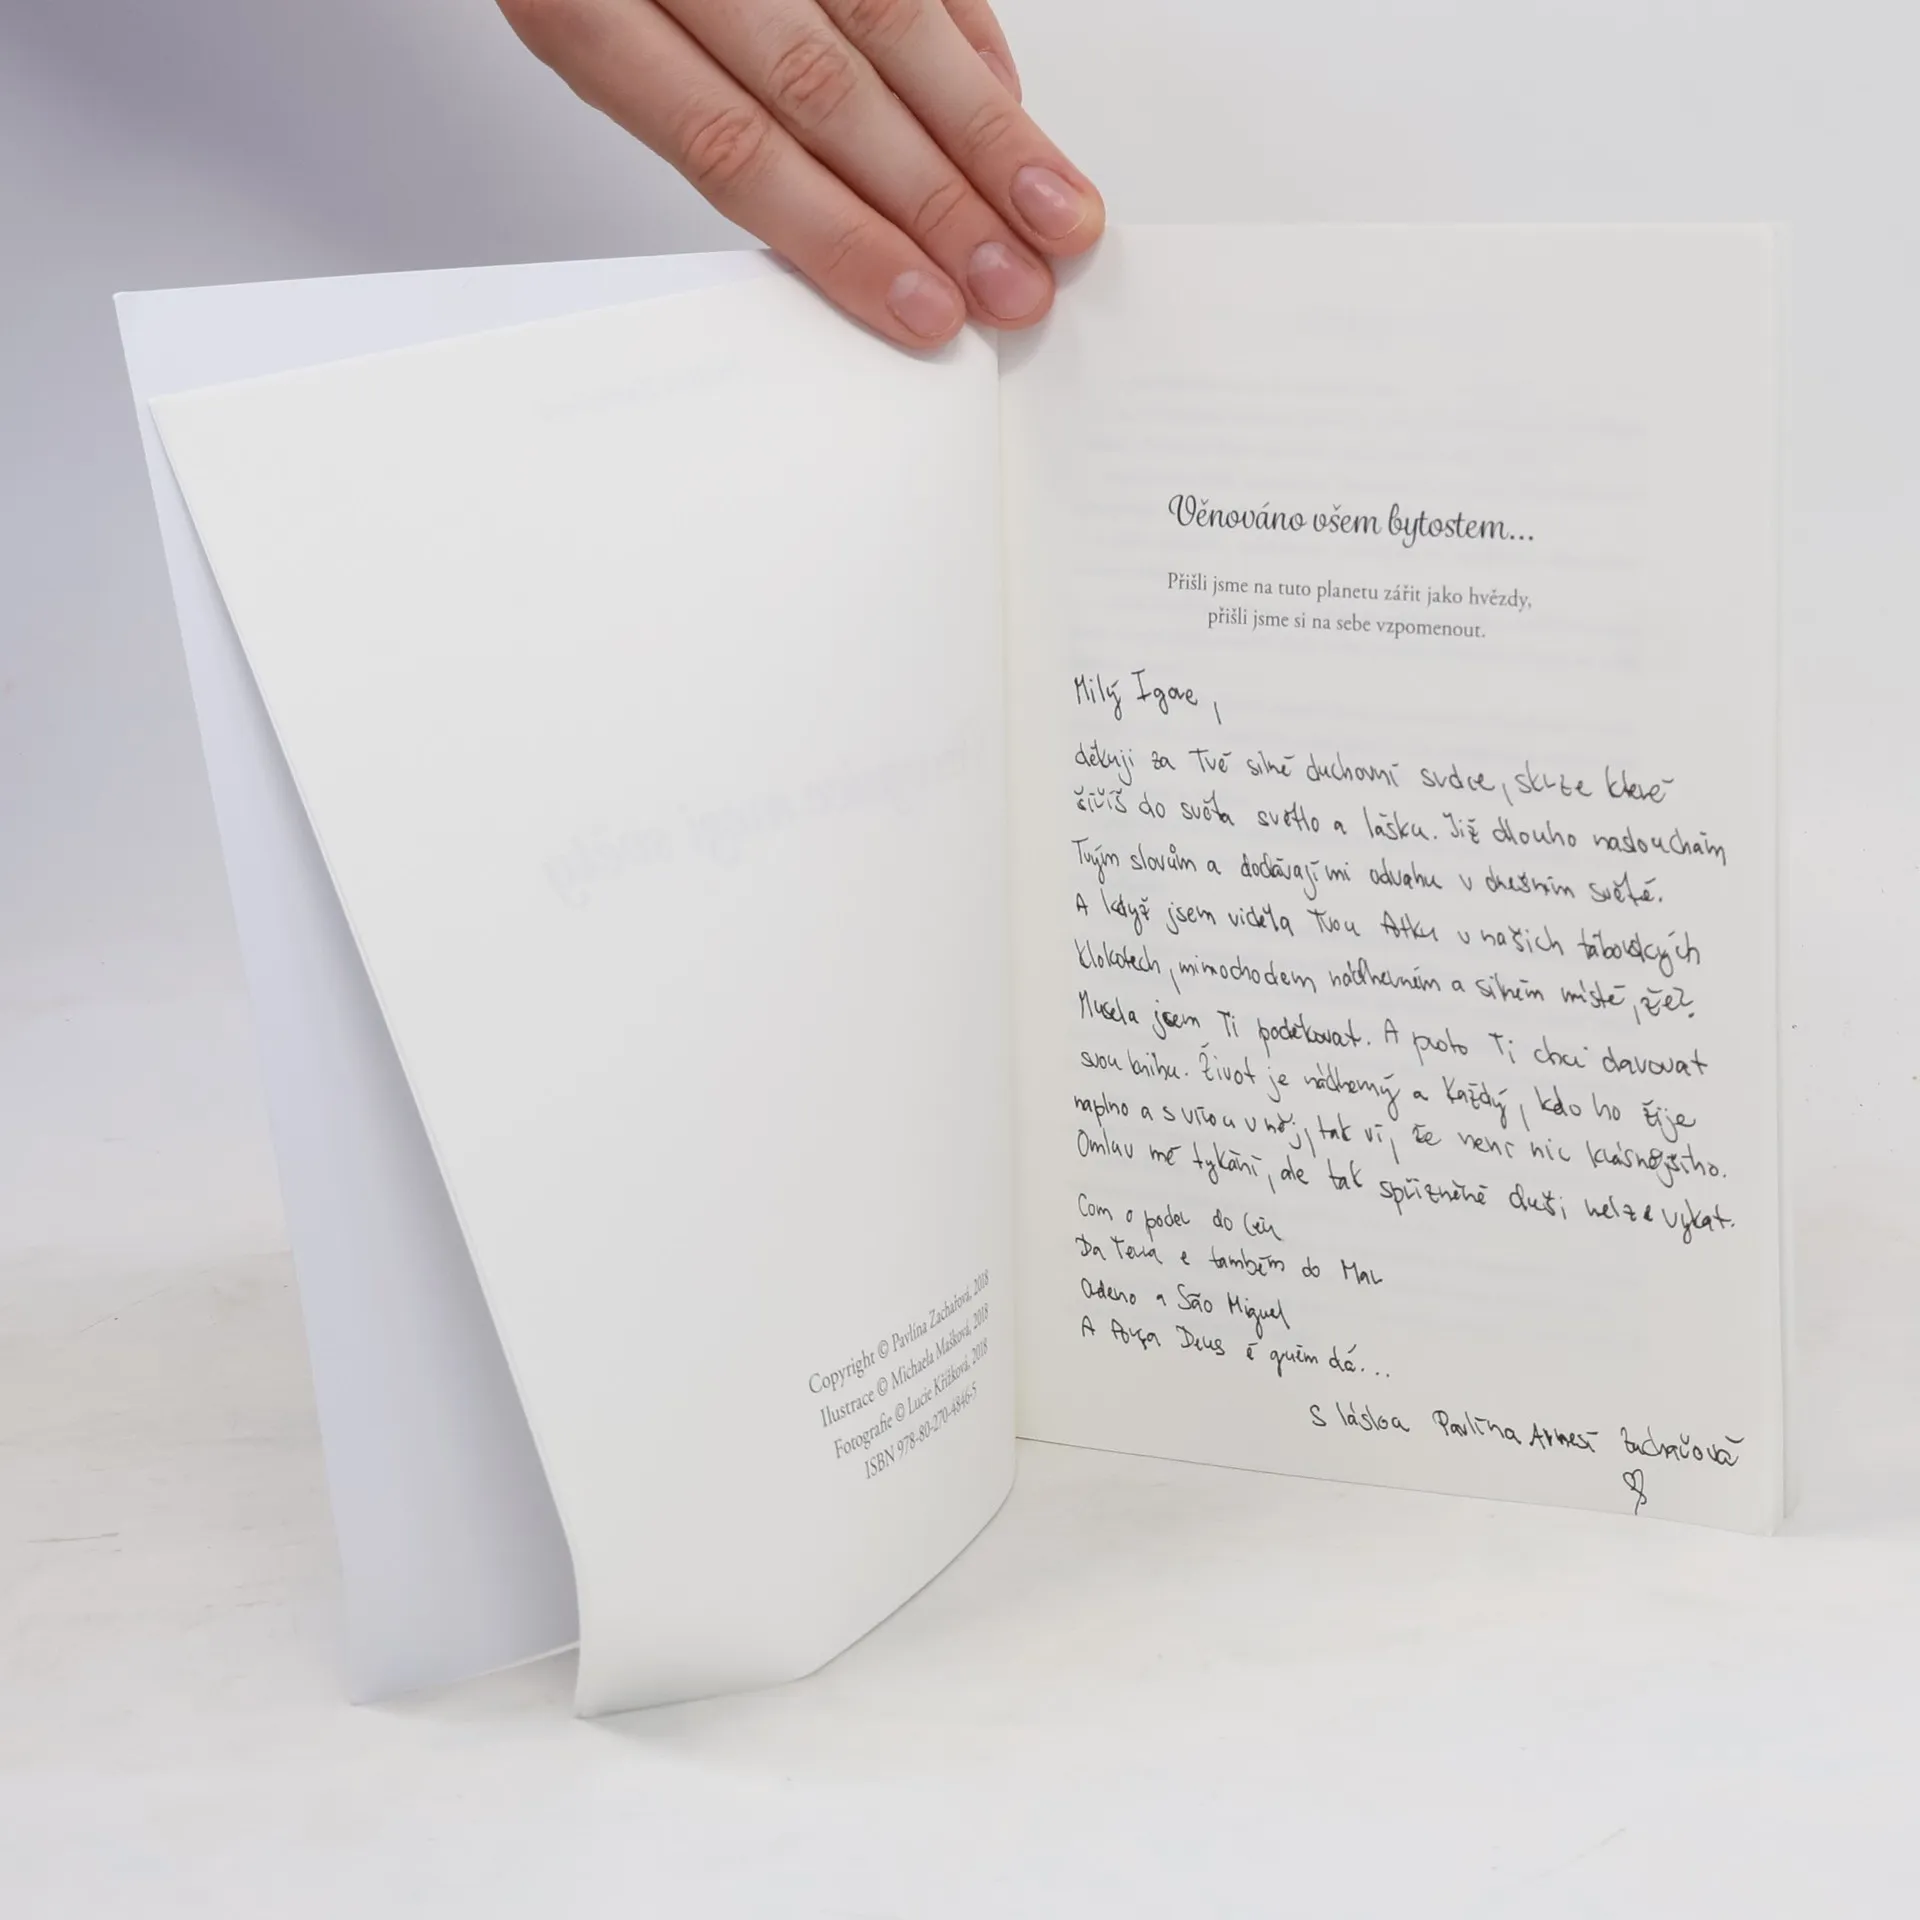 Copyright © Pavlína Zachařová, 2018
Ilustrace © Michaela Mašková, 2018
Fotografie © Lucie Křížková, 2018
ISBN 978-80-270-4846-5
Věnováno všem bytostem...
Přišli jsme na tuto planetu zářit jako hvězdy,
přišli jsme si na sebe vzpomenout.
Milý Igore,
děkuji za Tvé silné duchovní srdce, skrze které
šíříš do světa světlo a lásku. Již dlouho naslouchám
Tvým slovům a dodávají mi odvahu v dnešním světě.
A když jsem viděla Tvou fotku v našich táborských
Klokotech, mimochodem nádherném a silném místě, že?
Musela jsem Ti poděkovat. A proto Ti chci darovat
svou knihu. Život je nádherný a každý, kdo ho žije
naplno a s vírou v něj, tak ví, že není nic krásnějšího.
Omluv mé tykání, ale tak spřízněné duši nelze vykat.
Com o poder do Céu
Da Terra e também do Mar
Adeno a São Miguel
A força Deus é quem dá...
S láskou Pavlína Zachařová